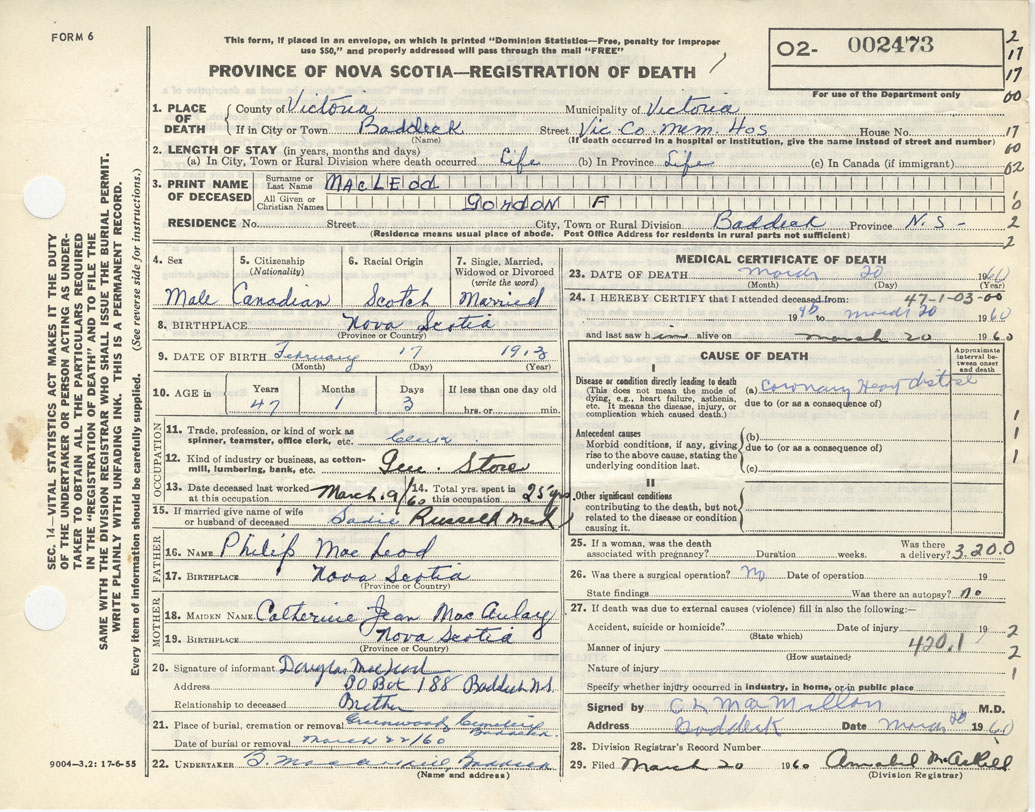 FORM 6
This form, if placed in an envelope, on which is printed "Dominion Statistics—Free, penalty for improper
use $50," and properly addressed will pass through the mail "FREE"
PROVINCE OF NOVA SCOTIA—REGISTRATION OF DEATH
02- 002473
For use of the Department only
2
17
17
00
17
60
62
1
0
2
2
SEC. 14—VITAL STATISTICS ACT MAKES IT THE DUTY
OF THE UNDERTAKER OR PERSON ACTING AS UNDER-
TAKER TO OBTAIN ALL THE PARTICULARS REQUIRED
IN THE "REGISTRATION OF DEATH" AND TO FILE THE
SAME WITH THE DIVISION REGISTRAR WHO SHALL ISSUE THE BURIAL PERMIT.
WRITE PLAINLY WITH UNFADING INK. THIS IS A PERMANENT RECORD.
Every item of information should be carefully supplied. (See reverse side for instructions.)
1. PLACE OF DEATH County of Victoria Municipality of Victoria
If in City or Town Baddeck Street Vic. Co. Mem. Hos House No.
(Name) (If death occurred in a hospital or institution, give the name instead of street and number)
2. LENGTH OF STAY (in years, months and days)
(a) In City, Town or Rural Division where death occurred Life (b) In Province Life (c) In Canada (if immigrant)
3. PRINT NAME OF DECEASED Surname or Last Name MacLeod
All Given or Christian Names Gordon F
RESIDENCE No. Street City, Town or Rural Division Baddeck Province N.S -
(Residence means usual place of abode. Post Office Address for residents in rural parts not sufficient)
4. Sex 5. Citizenship (Nationality) 6. Racial Origin 7. Single, Married, Widowed or Divorced (write the word)
Male Canadian Scotch Married
8. BIRTHPLACE Nova Scotia
(Province or Country)
9. DATE OF BIRTH February 17 1913
(Month) (Day) (Year)
10. AGE in Years Months Days If less than one day old
47 1 3 hrs. or min.
OCCUPATION
11. Trade, profession, or kind of work as
spinner, teamster, office clerk, etc.
12. Kind of industry or business, as cotton-
mill, lumbering, bank, etc. Gen. Store
13. Date deceased last worked at this occupation March 9/60 14. Total yrs. spent in this occupation 25 yrs
15. If married give name of wife
or husband of deceased Sadie Russell
FATHER
16. NAME Philip MacLeod
17. BIRTHPLACE Nova Scotia
(Province or Country)
MOTHER
18. MAIDEN NAME Catherine Jean MacAulay
19. BIRTHPLACE Nova Scotia
(Province or Country)
20. Signature of informant Douglas MacLeod
Address P.O. Box 188 Baddeck N.S.
Relationship to deceased
21. Place of burial, cremation or removal Greenwood Cemetery Baddeck
Date of burial or removal March 22/60
22. UNDERTAKER Baddeck
(Name and address)
9004—3.2: 17-6-55
MEDICAL CERTIFICATE OF DEATH
23. DATE OF DEATH March 20 1960
(Month) (Day) (Year)
24. I HEREBY CERTIFY that I attended deceased from: 47-1-03-00
19 to March 20 1960
and last saw him alive on March 20 1960
CAUSE OF DEATH
Approximate interval between onset and death
I
Disease or condition directly leading to death
(This does not mean the mode of
dying, e.g., heart failure, asthenia,
etc. It means the disease, injury, or
complication which caused death.)
(a) Coronary Heart disease
due to (or as a consequence of)
Antecedent causes
Morbid conditions, if any, giving
rise to the above cause, stating the
underlying condition last.
(b)
due to (or as a consequence of)
(c)
II
Other significant conditions
contributing to the death, but not
related to the disease or condition
causing it.
1
1
1
25. If a woman, was the death
associated with pregnancy? Duration weeks. Was there a delivery? 3.20.0
26. Was there a surgical operation? No Date of operation 19
State findings Was there an autopsy? no
27. If death was due to external causes (violence) fill in also the following:—
Accident, suicide or homicide? Date of injury 19
(State which)
Manner of injury 420.1
(How sustained)
Nature of injury
2
2
1
Specify whether injury occurred in industry, in home, or in public place
Signed by C L MacMillan M.D.
Address Baddeck Date March 20 1960
28. Division Registrar's Record Number
29. Filed March 20 1960 Annabel McAskill
(Division Registrar)